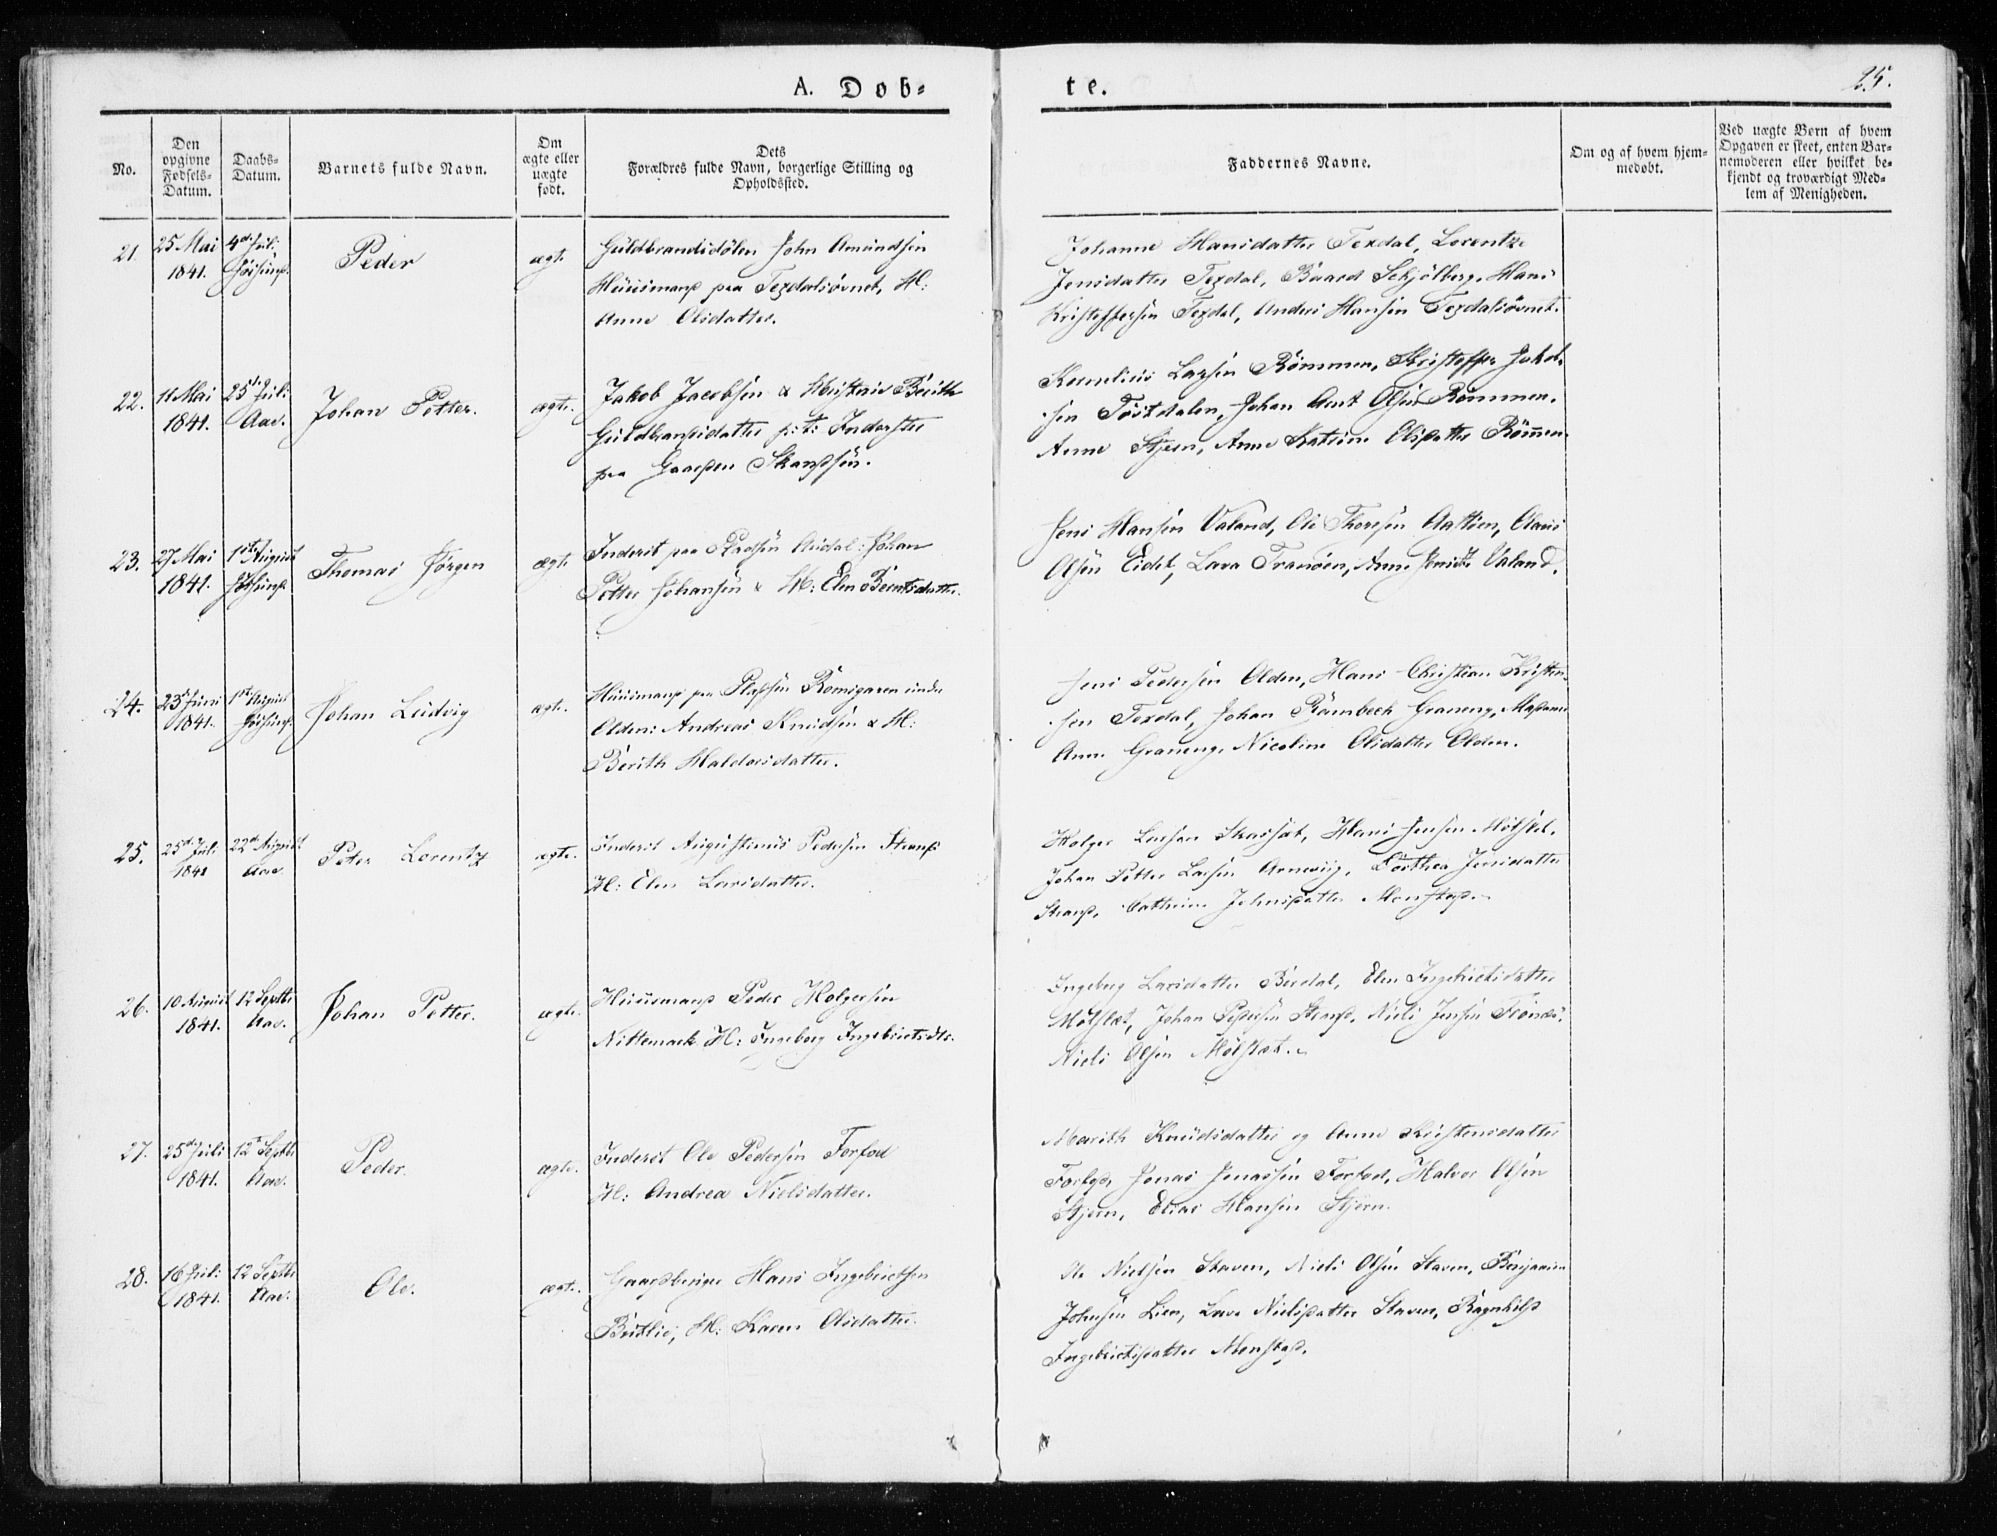 A. Døb-
te.
25.
No.
Den opgivne Fødsels-Datum.
Daabs-Datum.
Barnets fulde Navn.
Om ægte eller uægte født.
Dets
Forældres fulde Navn, borgerlige Stilling og
Opholdssted.
Faddernes Navne.
Om og af hvem hjem-
medøbt.
Ved uægte Børn af hvem
Opgaven er skeet, enten Bar-
nemoderen eller hvilket be-
kjendt og troværdigt Med-
lem af Menigheden.
21. 25 Mai 1841. 4de Juli Peder ægte
Guldbrandsdølen John Amundsen
Huusmand paa Texdalsøvnet, H:
Anne Olsdatter.
Johanne Hansdatter Texdal, Lorentze
Jensdatter Texdal, Baard Schjølberg, Hans
Kristoffersen Texdal, Anders Hansen Texdalsøvnet.
22. 11 Mai 1841. 25de Juli Aae. Johan Petter. ægte.
Jakob Jacobsen & Hustrue Berith
Guldbrandsdatter p:t: Inderster
paa Gaarden Strandsen.
Kornelius Larsen Rømmen, Kristoffer Jakob-
sen Tøstdalen, Johan Arnt Olsen Rømmen.
Anne Stjern, Anne Katrine Olsdatter Rømmen
23. 27 Mai 1841. 1ste August Thomas Jørgen ægte
Inderst paa Pladsen Audal: Johan
Petter Johansen & H: Elen Berntsdatter.
Jens Hansen Valand, Ole Thoresen Aastien, Claus
Olsen Eidet, Lava Tranøen, Anne Jensdtr Valand.
24. 23de Juni 1841. 1ste August Johan Ludvig ægte.
Huusmand paa Pladsen Romsgaren under
Olden: Andreas Knudsen & H:
Berith Haldorsdatter.
Jens Pedersen Olden, Hans Christian Kristen-
sen Texdal, Johan Rømbech Graneng, Madame
Anne Graneng, Nicoline Olsdatter Olden.
25. 25de Juli 1841 22de August Aae. Peter Lorentz ægte.
Inderst Augustinus Pedersen Strand
H: Elen Larsdatter.
Holger Larsen Skarsæt, Hans Jensen Mølslet.
Johan Petter Larsen Arneviig, Dorthea Jensdatter
Strand, Cathrine Johnsdatter Monstad.
26. 10 August 1841. 12 Septbr Aae. Johan Petter. ægte.
Huusmand Peder Holgersen
Nittemark H: Ingeborg Ingebrietsdtr.
Ingeborg Larsdatter Berdal, Elen Ingebrietsdatter
Mølslet, Johan Pedersen Strand, Niels Jensen
Niels Olsen Mølslet.
27. 25de Juli 1841. 12te Septbr Aae. Peder. ægte.
Inderst Ole Pedersen Forfod
H: Andrea Nielsdatter.
Marith Knudsdatter og Anne Kristensdatter
Forfod, Jonas Jonassen Forfod, Halvor Olsen
Stjern, Elias Hansen Stjern.
28. 16 Juli 1841. 12 Septbr Aae. Ole. ægte.
Gaardbruger Hans Ingebrietsen
H: Karen Olsdatter.
Ole Nielsen Staven, Niels Olsen Staven, Benjamin
Johnsen Lien, Lava Nielsdatter Staven, Ragnhild
Ingebrietsdatter Monstad.